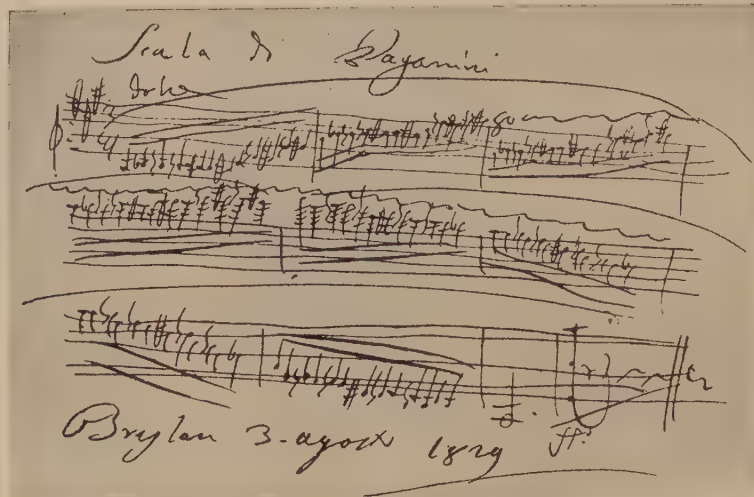 Scala di Paganini
dolce
Breslau 3. agosto 1829
ff.